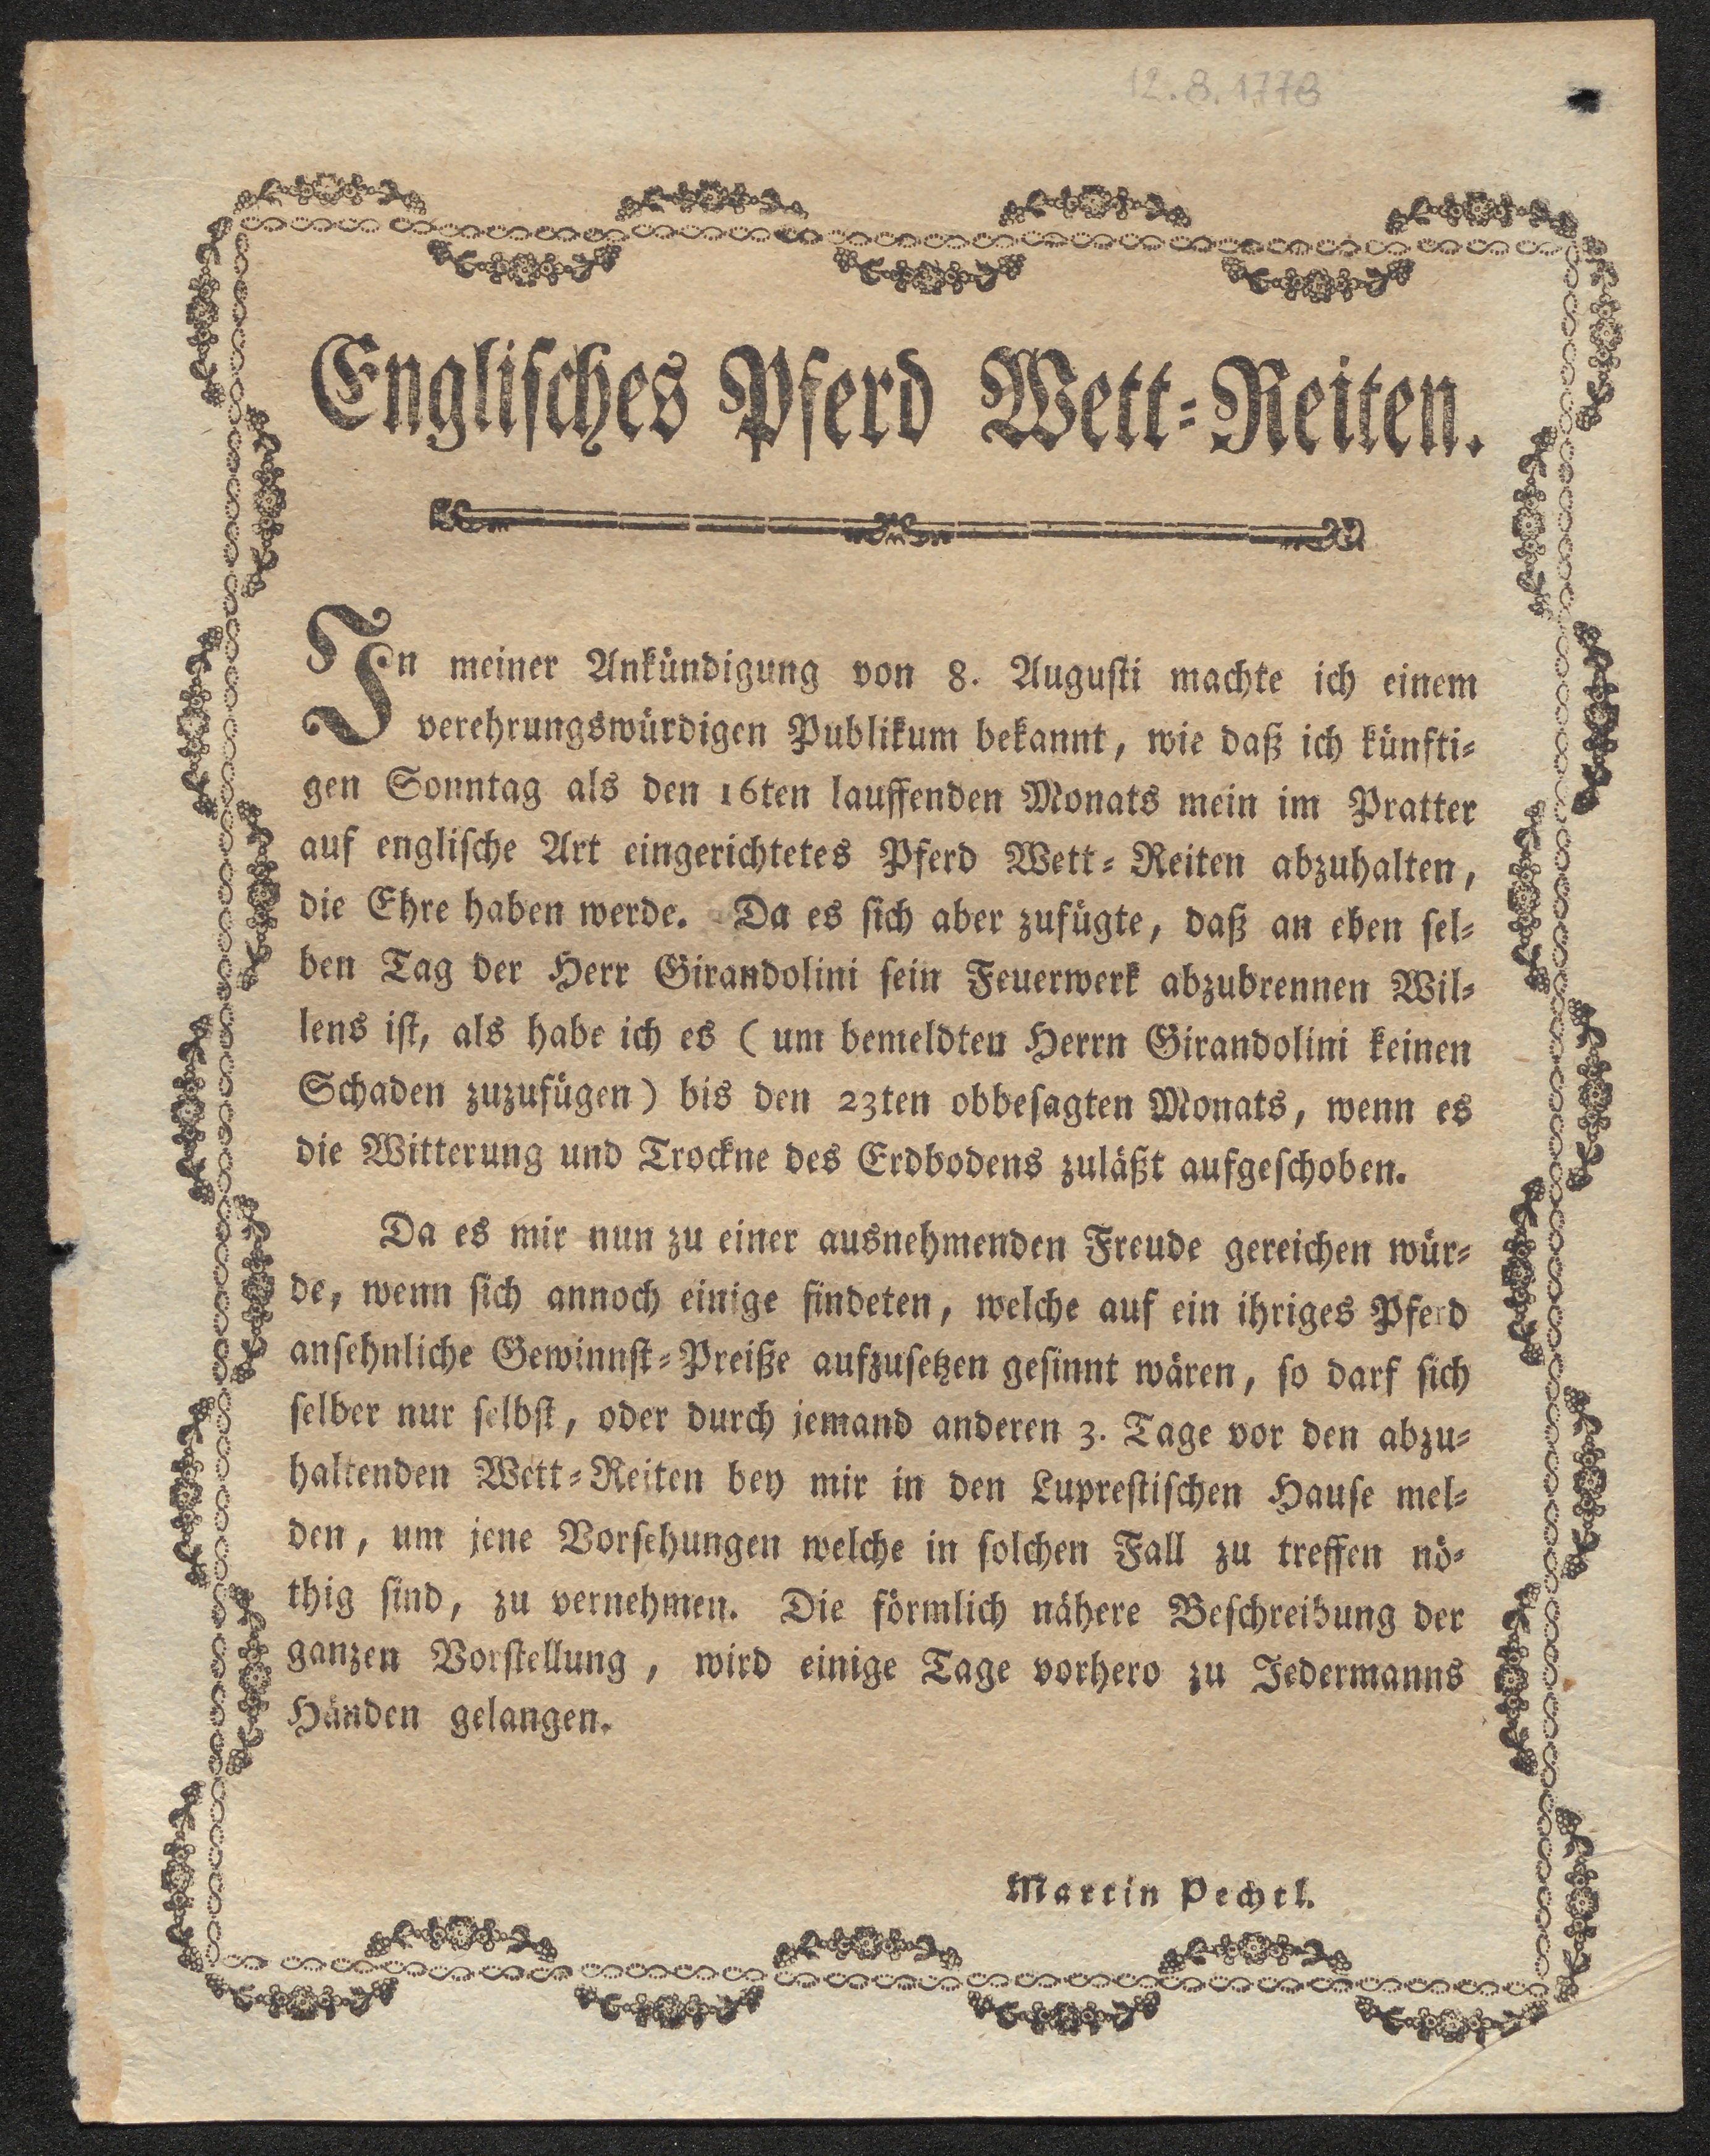 12.8.1778
Englisches Pferd Wett-Reiten.
In meiner Ankündigung von 8. Augusti machte ich einem
verehrungswürdigen Publikum bekannt, wie daß ich künfti-
gen Sonntag als den 16ten lauffenden Monats mein im Pratter
auf englische Art eingerichtetes Pferd Wett-Reiten abzuhalten,
die Ehre haben werde. Da es sich aber zufügte, daß an eben sel-
ben Tag der Herr Girandolini sein Feuerwerk abzubrennen Wil-
lens ist, als habe ich es (um bemeldten Herrn Girandolini keinen
Schaden zuzufügen) bis den 23ten obbesagten Monats, wenn es
die Witterung und Trockne des Erdbodens zuläßt aufgeschoben.
Da es mir nun zu einer ausnehmenden Freude gereichen wür-
de, wenn sich annoch einige findeten, welche auf ein ihriges Pferd
ansehnliche Gewinnst-Preiße aufzusetzen gesinnt wären, so darf sich
selber nur selbst, oder durch jemand anderen 3. Tage vor den abzu-
haltenden Wett-Reiten bey mir in den Luprestischen Hause mel-
den, um jene Vorsehungen welche in solchen Fall zu treffen nö-
thig sind, zu vernehmen. Die förmlich nähere Beschreibung der
ganzen Vorstellung, wird einige Tage vorhero zu Jedermanns
Händen gelangen.
Martin Pechtl.